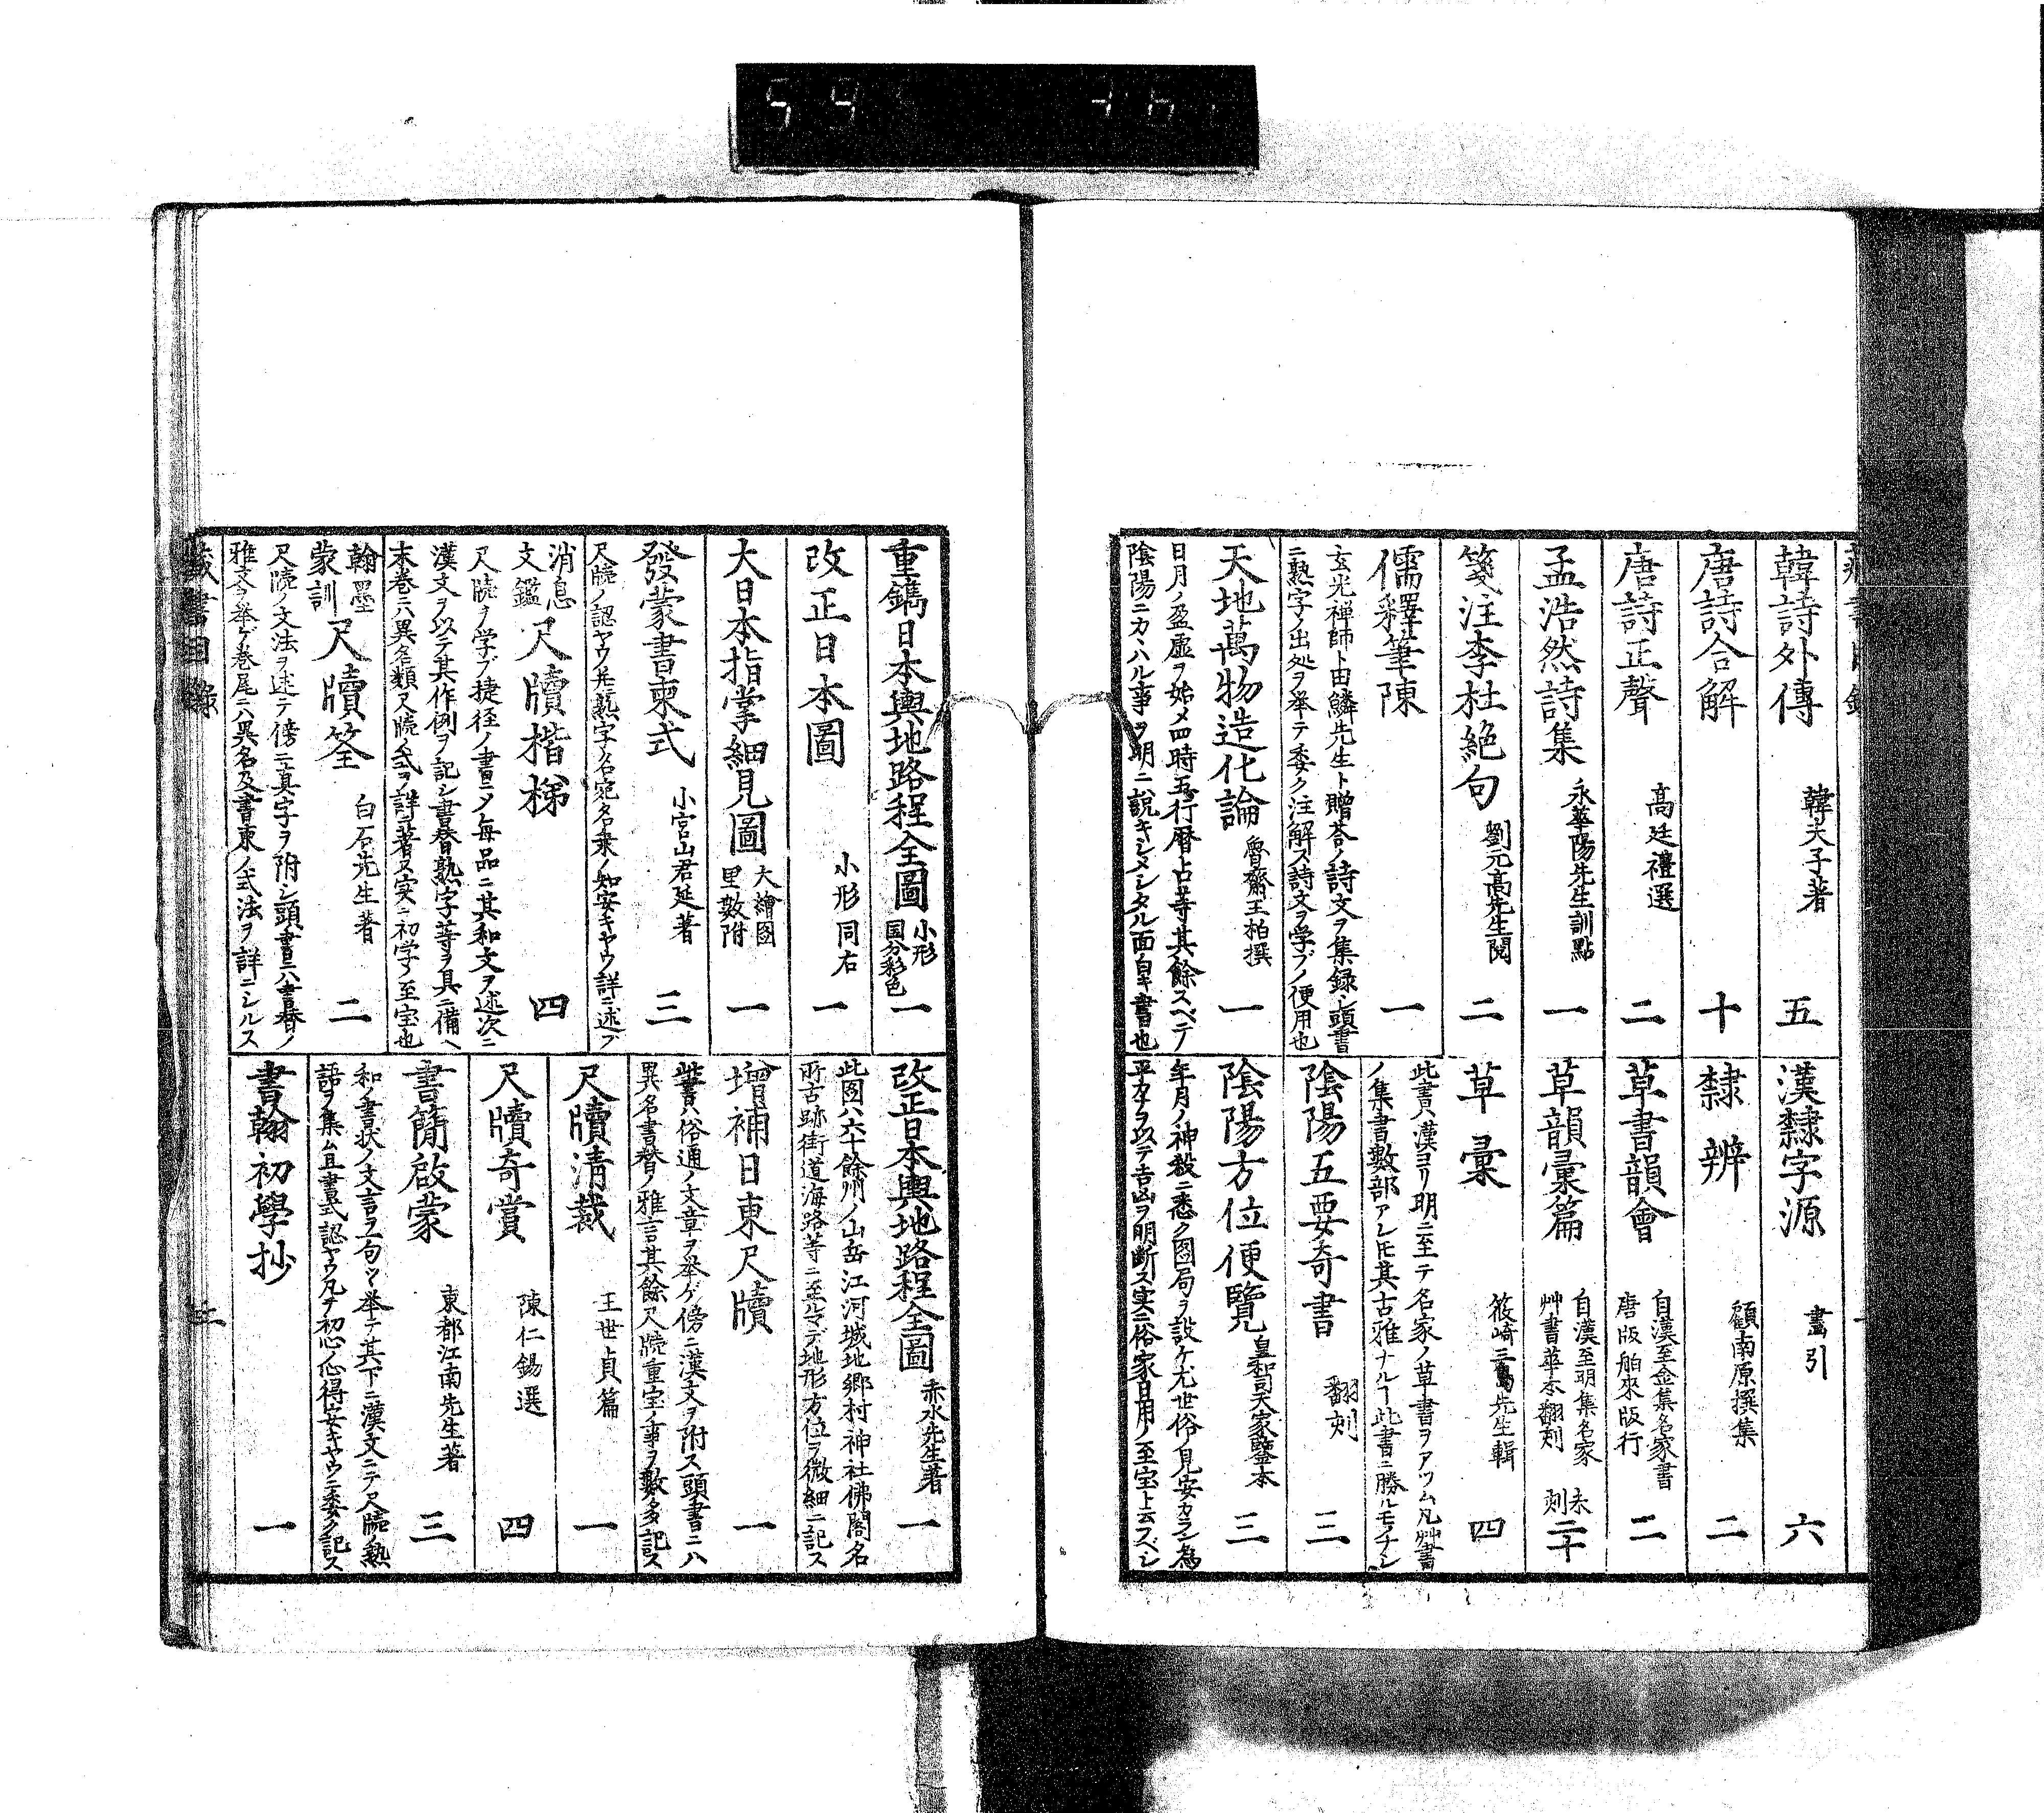 藏書目錄
韓詩外傳 韓夫子著 五
唐詩合解 十
唐詩正聲 高廷禮選 二
孟浩然詩集 永華陽先生訓點 一
箋注李杜絶句 劉元高先生閲 二
儒釋筆陳 一
玄光禅師ト由鱗先生ト贈荅ノ詩文ヲ集録シ頭書
ニ熟字ノ出処ヲ举テ委ク注解ス詩文ヲ学ブノ便用也
天地萬物造化論 魯齋王柏撰 一
日月ノ盈虚ヲ始メ四時五行暦占等其餘スベテ
陰陽ニカヽハル事ヲ明ニ説キシメシタル面白キ書也
漢隸字源 畫引 六
隸辨 顧南原撰集 二
草書韻會 自漢至金集名家書
唐版舶來版行 二
草韻彙篇 自漢至明集名家
艸書華本翻刻 未刻 二十
草彙 篠崎三嶌先生輯 四
此書ハ漢ヨリ明ニ至テ名家ノ草書ヲアツム凡艸書
ノ集書數部アレ𪜈其古雅ナルヿ此書ニ勝ルモノナシ
陰陽五要奇書 翻刻 三
陰陽方位便覽 皇和司天家鑒本 三
年月ノ神殺ニ悉ク図局ヲ設ケ尤世俗ノ見安カラン為
平カナヲ以テ吉凶ヲ明断ス実ニ俗家日用ノ至宝ト云フベシ
重鐫日本輿地路程全圖 小形
国分彩色 一
改正日本圖 小形同右 一
大日本指掌細見圖 大繪図
里數附 一
發蒙書柬式 小宮山君延著 三
尺牘ノ認ヤウ并熟字ノ名宛名乗ノ知安キヤウ詳ニ述ブ
消息
文鑑 尺牘楷梯 四
尺牘ヲ学ブ捷徑ノ書ニメ毎品ニ其和文ヲ述次ニ
漢文ヲ以テ其作例ヲ記シ書替熟字等ヲ具ニ備ヘ
末巻ニ六異名類尺牘ノ式ヲ詳ニ著ス実ニ初学ノ至宝也
翰墨
蒙訓 尺牘筌 白石先生著 二
尺牘ノ文法ヲ述テ傍ニ真字ヲ附シ頭書ニハ書替ノ
雅言ヲ举ゲ巻尾ニハ異名及書柬ノ式法ヲ詳ニシルス
改正日本輿地路程全圖 赤水先生著 一
此図ハ六十餘州ノ山岳江河城地郷村神社佛閣名
所古跡街道海路等ニ至ルマデ地形方位ヲ微細ニ記ス
增補日東尺牘 一
此書ハ俗通ノ文章ヲ举ゲ傍ニ漢文ヲ附ス頭書ニハ
異名書替ノ雅言其餘尺牘重宝ノ事ヲ數多記ス
尺牘清裁 王世貞篇 一
尺牘奇賞 陳仁錫選 四
書簡啟蒙 東都江南先生著 三
和ノ書状ノ文言ヲ一句ツヽ举テ其下ニ漢文ニテ尺牘ノ熟
語ヲ集ム且書式認ヤウ凡テ初心ノ心得安キヤウニ委ク記ス
書翰初學抄 一
藏書目錄